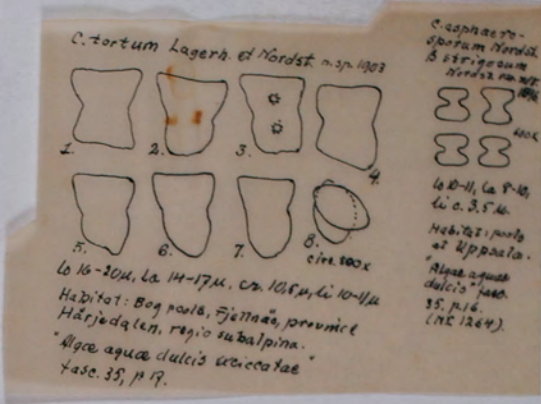 C. tortum Lagerh. et Nordst. n.sp. 1903
1. 2. 3. 4.
5. 6. 7. 8.
circ. 800x
Lo 16-20µ, La 14-17µ, cr. 10,5µ, li 10-11µ
Habitat: Bog pools, Fjellnäs, province
Härjedalen, regio subalpina.
"Algae aquae dulcis exiccatae"
fasc. 35, p 17.
C. asphaero-
sporum Nordst.
β strigosum
Nordst.
Lo 10-11, La 9-10,
li c. 3.5 µ.
Habitat: pools
at Uppsala.
"Algae aquae
dulcis" fasc.
35. p.16.
(Nr 1264).